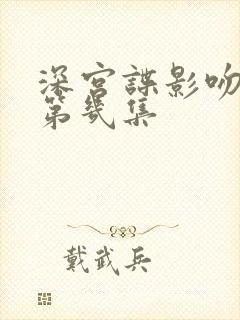 深宫諜影吻
第几集
戴武兵